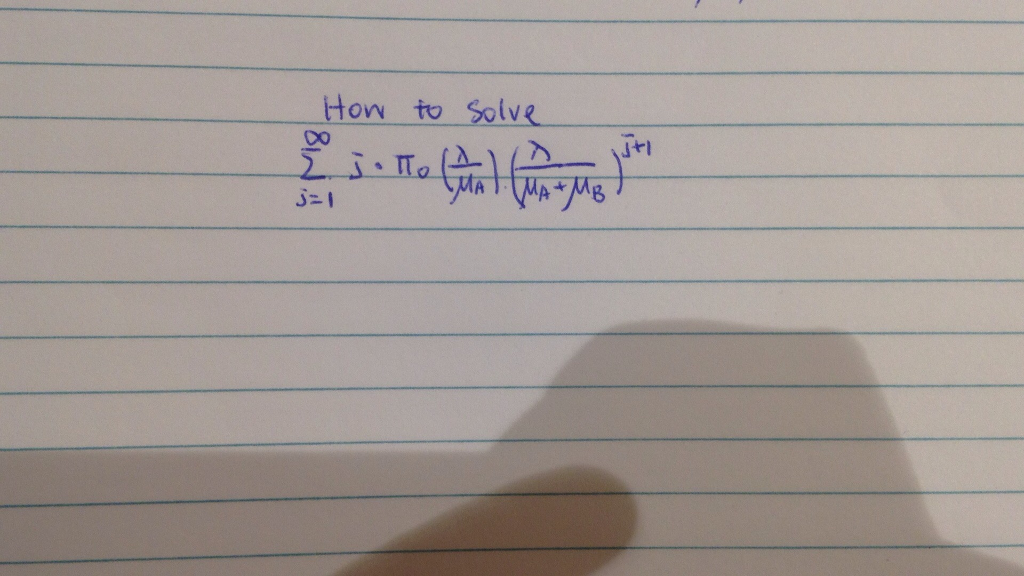 How to solve
∞
Σ j · π₀ (λ/μA) (λ/(μA + μB))^(j+1)
j=1